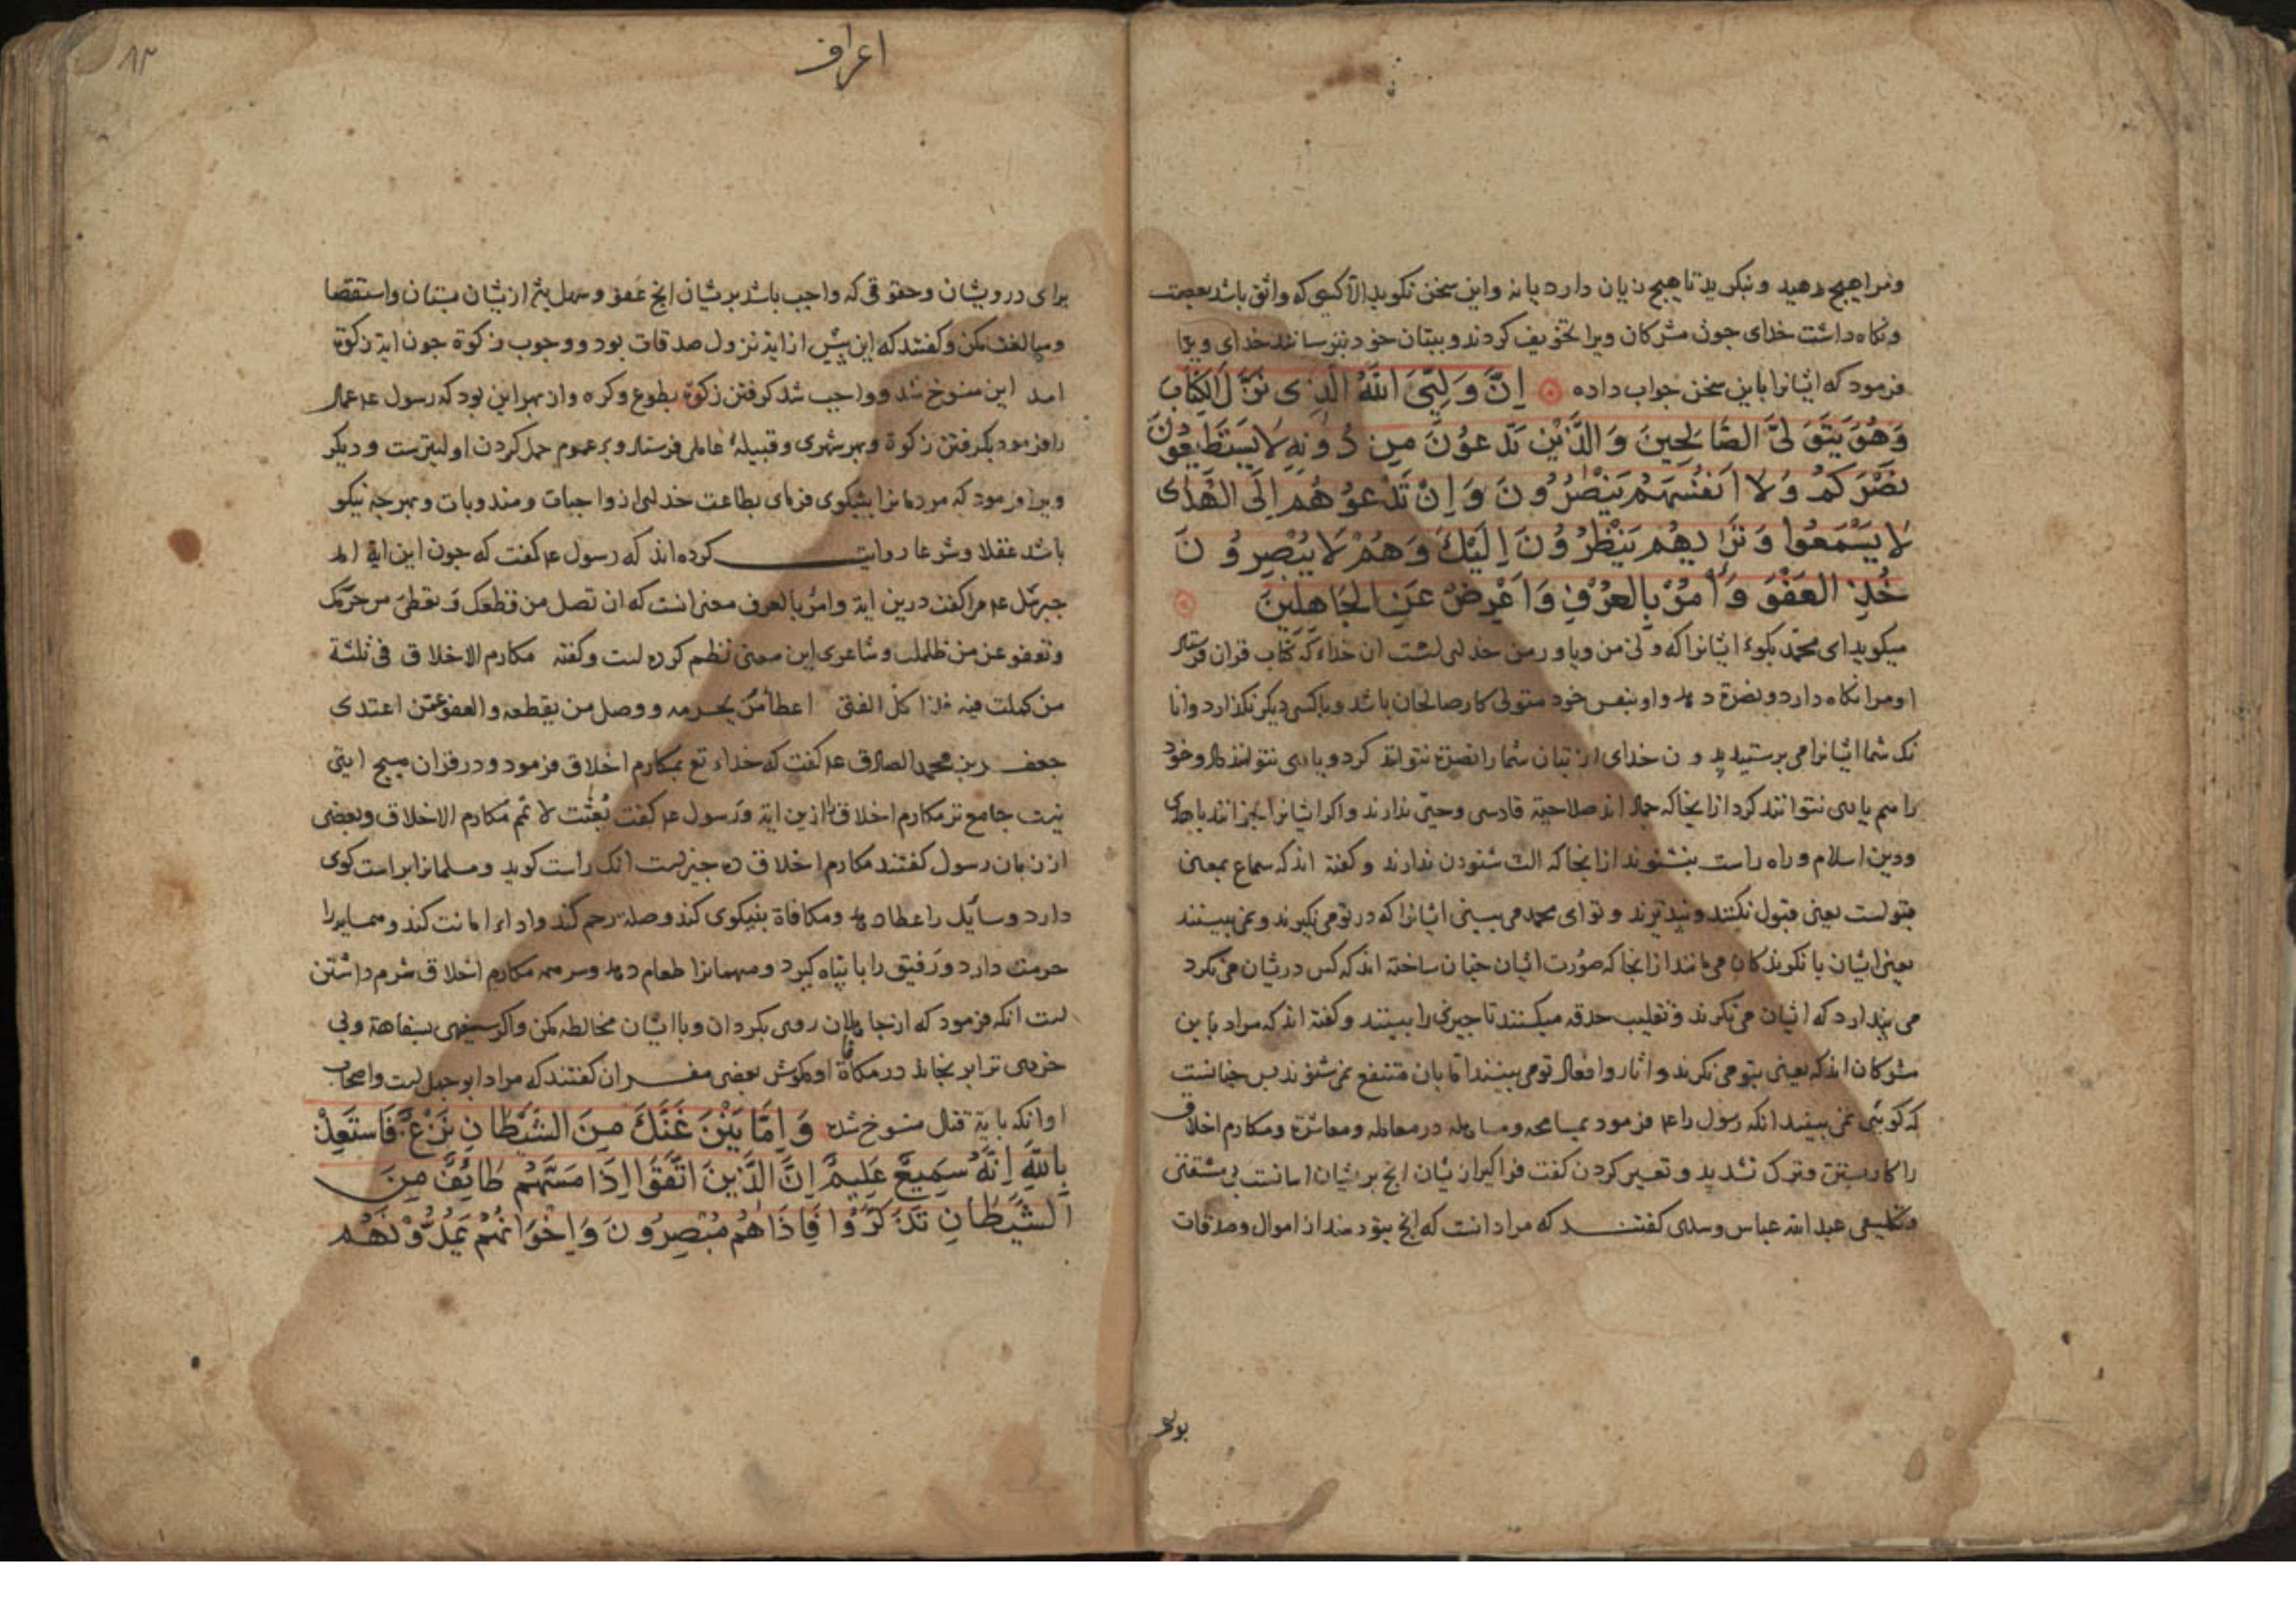 ومرا هیچ مدهید و ننکرید تا هیچ زیان دارد یا نه و این سخن نکوید الا کسی که واثق باشد بعصمت
و نکاه داشت خدای جون مشرکان ویرا تخویف کردند و ببتان خود بترسانند خدای ویرا
فرمود که ایشانرا باین سخن جواب داده اِنَّ وَلِیِّیَ اللهُ الَّذِی نَزَّلَ الکِتَابَ
وَهُوَ یَتَوَلَّی الصَّالِحِینَ وَالَّذِینَ تَدْعُونَ مِن دُونِهِ لَا یَسْتَطِیعُونَ
نَصْرَکُمْ وَلَا اَنفُسَهُمْ یَنْصُرُونَ وَاِنْ تَدْعُوهُمْ اِلَی الهُدَی
لَا یَسْمَعُوا وَتَرَایهُمْ یَنْظُرُونَ اِلَیْکَ وَهُمْ لَا یُبْصِرُونَ
خُذِ العَفْوَ وَاْمُرْ بِالعُرْفِ وَاَعْرِضْ عَنِ الجَاهِلِینَ
میکوید ای محمد بکوء ایشانرا که ولی من و یاور من خدای است ان خداء که کتاب قران فرستاد
او مرا نکاه دارد و نصرة دهد و او بنفس خود متولی کار صالحان باشد و با کسی دیکر نکذارد و انا
نک شما ایشانرا می برستیدید و ن خدای از بتان شما را نصرة نتوانند کرد و یاری نتوانند داد و خود
را هم یاری نتوانند کرد از ایجا که جماد اند صلاحیة قادری و حیی ندارند و اکر ایشانرا بخوانند با هدی
و دین اسلام و راه راست بنشنوند از ایجا که الت شنودن ندارند و کفته اند که سماع بمعنی
قبولست یعنی قبول نکنند و نپذیرند و تو ای محمد می بینی ایشانرا که در تو می نکیرند و نمی بینند
یعنی ایشان با نکرندکان می مانند از انجا که صورت ایشان جنان ساخته اند که کس در یشان می نکرد
می پندارد که ایشان می نکرند و تقلیب حدقه میکنند تا جیزی را ببینند و کفته اند که مراد باین
مشرکان اند که یعنی بتو می نکرند و اثار و افعال تو می بینند اما بان منتفع نمی شوند بس جنانست
که کویی نمی بینند انکه رسول را عم فرمود بمسامحه و مساهله در معامله و معاشرة و مکارم اخلاق
را کار بستن و ترک تشدید و تعسیر کردن کفت فراکیر از یشان انج بر یشان اسانست بی مشقتی
و تکلیفی عبد الله عباس و سدی کفتند که مراد انست که انج بتو دهند از اموال و صدقات
برای
اعراف
۸۳
برای درویشان و حقوقی که واجب باشد بر یشان انج عفو و سهل بیز از یشان بستان و استقصا
و مبالغت مکن و کفتند که این پیش از ایة نزول صدقات بود و وجوب زکوة جون ایة زکوة
امد این منسوخ شد و واجب شد کرفتن زکوة بطوع و کره و از بهر این بود که رسول عم عمال
را فرمود بکرفتن زکوة و بهر شهری و قبیلهٔ عاملی فرستاد و بر عموم حمل کردن اولیترست و دیکر
ویرا فرمود که مردمانرا بنیکوی فرمای بطاعت خدای از واجبات و مندوبات و بهر جه نیکو
باشد عقلا و شرعا روایت کرده اند که رسول عم کفت که جون این ایة امد
جبرئل عم مرا کفت درین ایة وامر بالعرف معنی انست که ان تصل من قطعک و تعطی من حرمک
وتعفو عن من ظلمک و شاعری این معنی نظم کرده است و کفته مکارم الاخلاق فی ثلثة
من کملت فیه فذا کل الفتی اعطا من یحرمه ووصل من یقطعه والعفو عمن اعتدی
جعفر بن محمد الصادق عم کفت که خداء تع بمکارم اخلاق فرمود و در قران هیچ ایتی
نیست جامع تر مکارم اخلاق را ازین ایة و رسول عم کفت بُعِثت لاتمّم مکارم الاخلاق و بعضی
از زبان رسول کفتند مکارم اخلاق ده جیزست انک راست کوید و مسلمانرا براست کوی
دارد و سایل را عطا دهد و مکافاة بنیکوی کند و صله رحم کند و اداء امانت کند و همسایه را
حرمت دارد و رفیق را با پناه کیرد و مهمانرا طعام دهد و سر همه مکارم اخلاق شرم داشتن
است انکه فرمود که از جاهلان روی بکردان و با ایشان مخالطه مکن و اکر سفیهی بسفاهة و بی
خردی ترا برنجاند در مکافاة او مکوش بعضی مفسران کفتند که مراد ابو جهل است و اصحاب
او انکه بایة قتال منسوخ شد وَاِمَّا یَنْزَغَنَّکَ مِنَ الشَّیْطَانِ نَزْغٌ فَاسْتَعِذْ
بِاللهِ اِنَّهُ سَمِیعٌ عَلِیمٌ اِنَّ الَّذِینَ اتَّقَوْا اِذَا مَسَّهُمْ طَائِفٌ مِنَ
الشَّیْطَانِ تَذَکَّرُوا فَاِذَا هُمْ مُبْصِرُونَ وَاِخْوَانُهُمْ یَمُدُّونَهُمْ